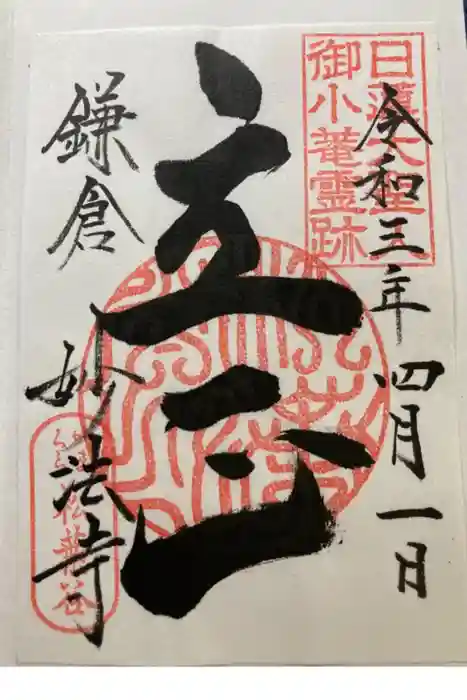 日蓮大聖
御小菴霊跡
令和三年四月一日
立正
鎌倉 妙法寺